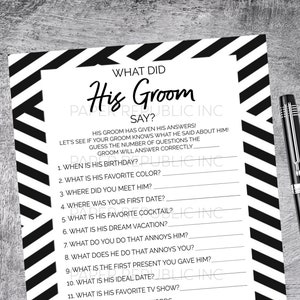 WHAT DID
His Groom
SAY?
HIS GROOM HAS GIVEN HIS ANSWERS!
LET'S SEE IF YOUR GROOM KNOWS WHAT HE SAID ABOUT HIM!
GUESS THE NUMBER OF QUESTIONS THE
GROOM WILL ANSWER CORRECTLY
1. WHEN IS HIS BIRTHDAY?
2. WHAT IS HIS FAVORITE COLOR?
3. WHERE DID YOU MEET HIM?
4. WHERE WAS YOUR FIRST DATE?
5. WHAT IS HIS FAVORITE COCKTAIL?
6. WHAT IS HIS DREAM VACATION?
7. WHAT DO YOU DO THAT ANNOYS HIM?
8. WHAT DOES HE DO THAT ANNOYS YOU?
9. WHAT IS THE FIRST PRESENT YOU GAVE HIM?
10. WHAT IS HIS IDEAL DATE?
11. WHAT IS HIS FAVORITE TV SHOW?
PAPER REPUBLIC INC
PAPER REPUBLIC INC